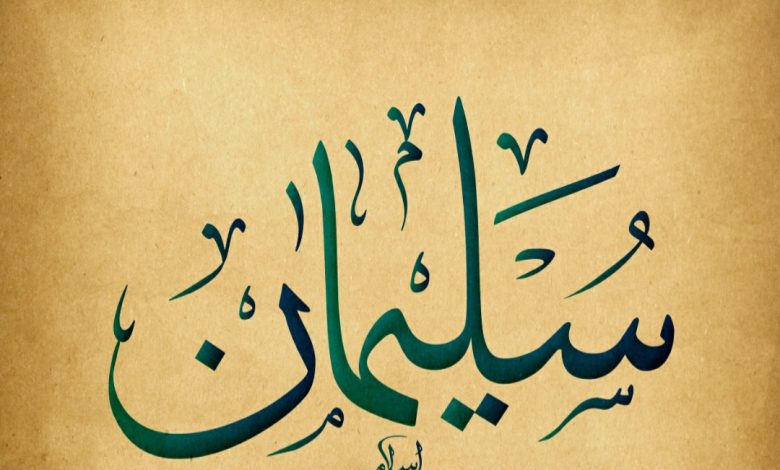 سُلیمان